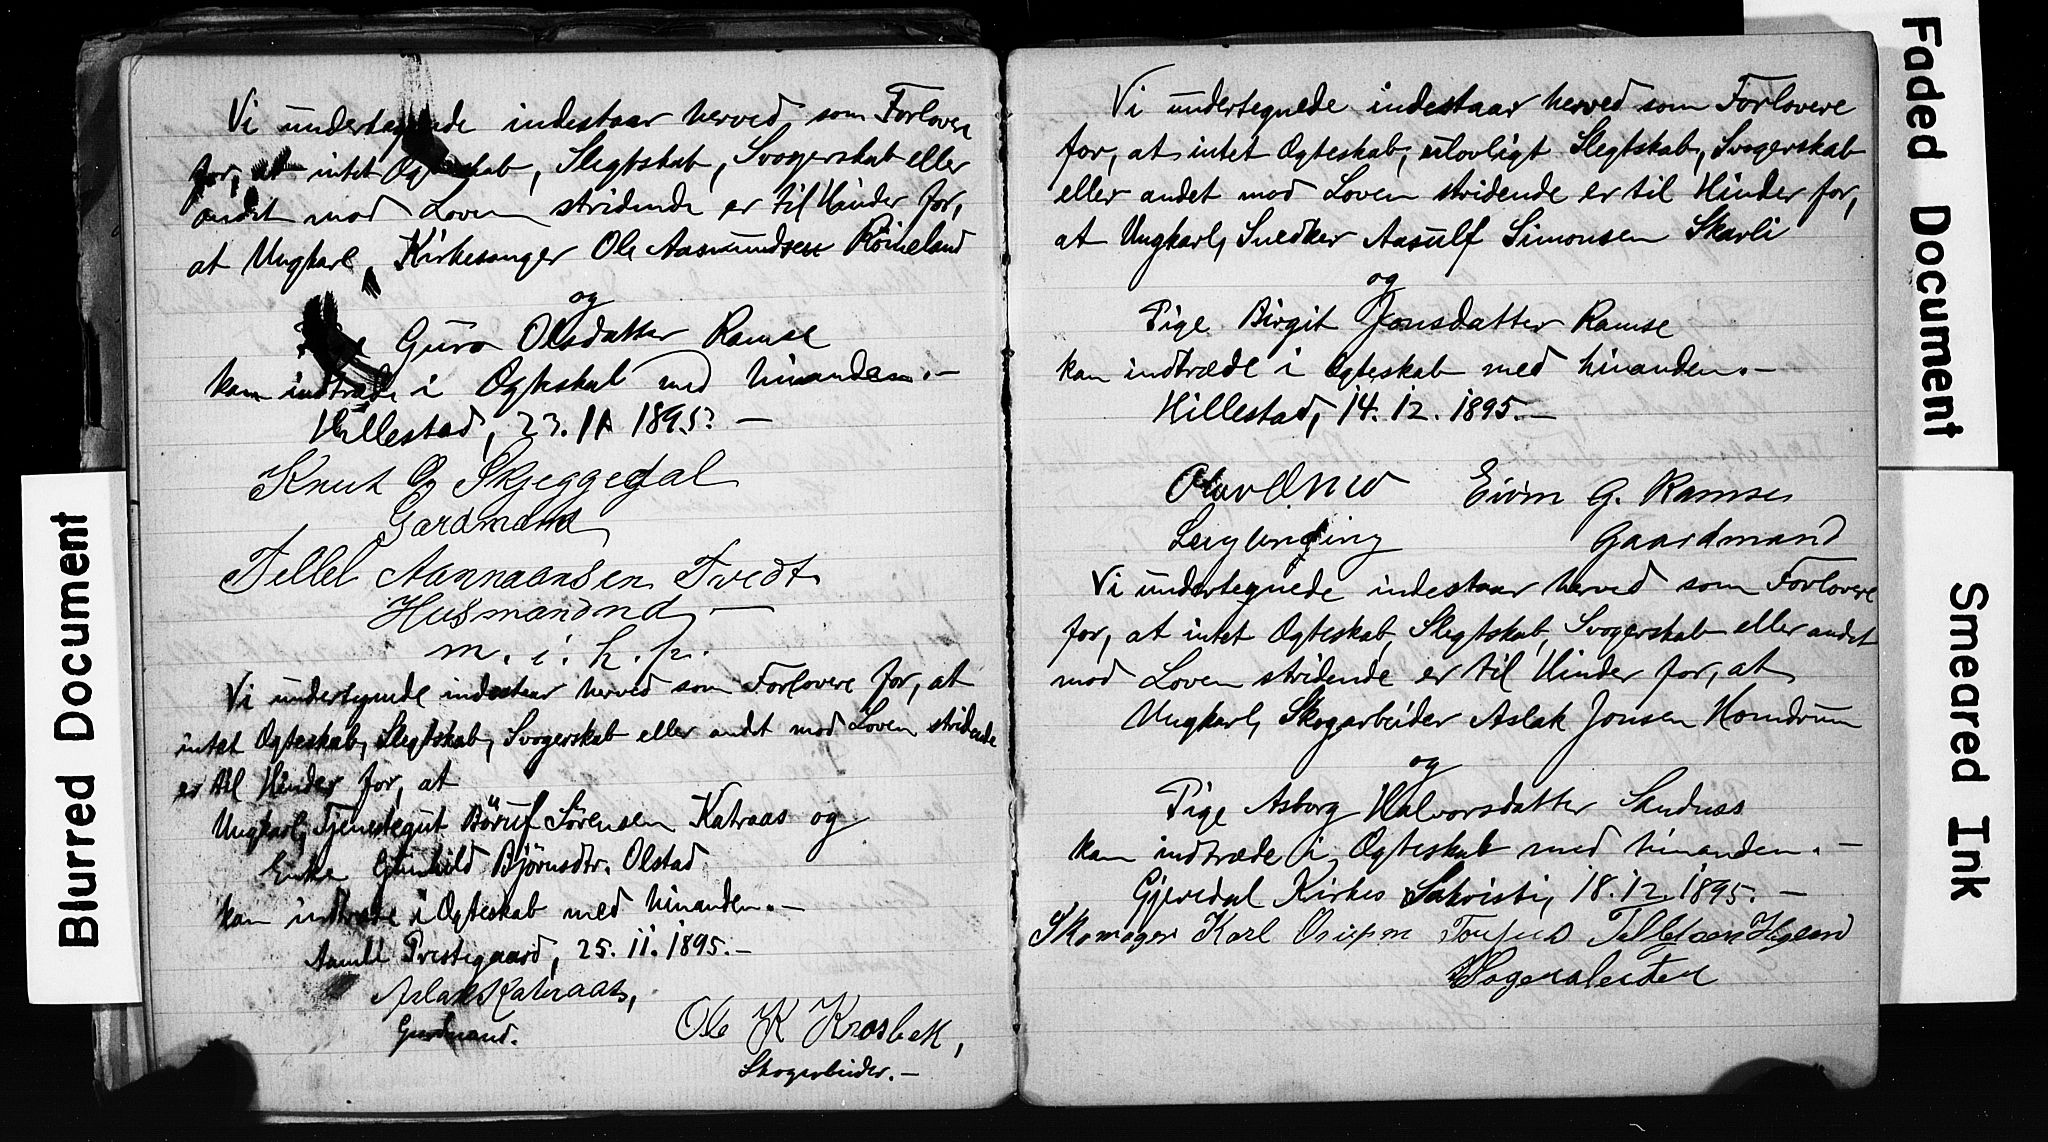 Vi undertegnede indestaar herved som Forlovere
for, at intet Ogteskab, Slegtskab, Svogerskab eller
andet mod Loven stridende er til Hinder for,
at Ungkarl, Kirkesanger Ole Aasmundsen Röineland
og
Guro Olsdatter Ramse
kan indtræde i Ogteskab med hinanden.-
Hillestad, 23. 11 1895. -
Knut O Skjeggedal
Gardmand
Tellef Aannaansen Tvedt
Husmandnd -
m. i. h. p.
Vi undertegnede indestaar herved som Forlovere for, at
intet Ogteskab, Slegtskab, Svogerskab eller andet mod Loven stridende
er til Hinder for, at
Ungkarl, Tjenestegut Böruf Sörensen Katraas og
Enke Gunhild Björnsdtr. Olstad
kan indtræde i Ogteskab med hinanden. -
Aamli Prestegaard, 25. 11. 1895. -
Aslak Katraas,
Gardmand.
Ole K Krosbek,
Skogarbeider. -
Vi undertegnede indestaar herved som Forlovere
for, at intet Ogteskab, ulovligt Slegtskab, Svogerskab
eller andet mod Loven stridende er til Hinder for,
at Ungkarl, Snedker Aasulf Simonsen Skarli
og
Pige Birgit Jonsdatter Ramse
kan indtræde i Ogteskab med hinanden. -
Hillestad, 14. 12. 1895. -
Eivin G. Ramse
Leiglending Gaardmand
Vi undertegnede indestaar herved som Forlovere
for, at intet Ogteskab, Slegtskab, Svogerskab eller andet
mod Loven stridende er til Hinder for, at
Ungkarl, Skogarbeider Aslak Jonsen Homdrum
og
Pige Asborg Halvorsdatter Sandnes
kan indtræde i Ogteskab med hinanden. -
Gjevedal Kirkes Sakristi, 18. 12. 1895. -
Skomager Karl Tellefsen
Skogarbeider
Blurred Document
Faded Document
Smeared Ink